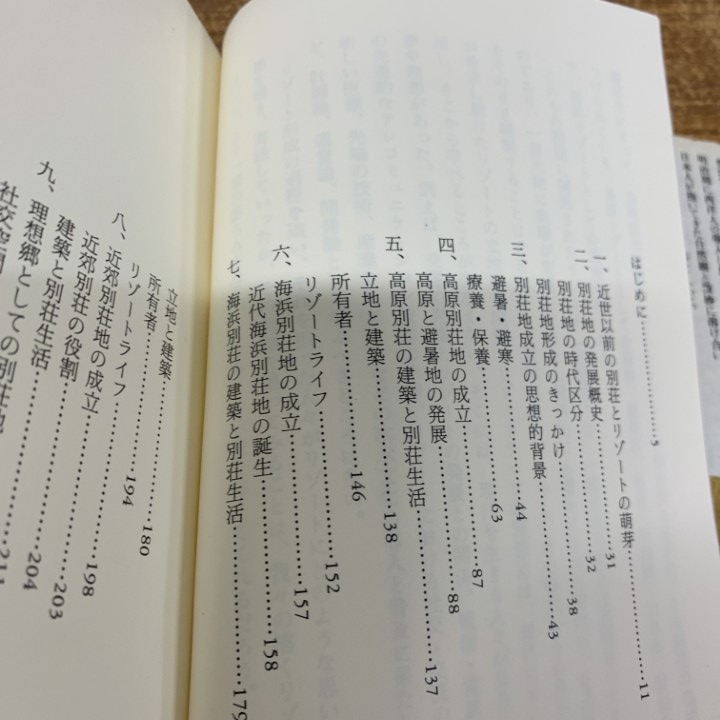 はじめに……5
一、近世以前の別荘とリゾートの萌芽……11
二、別荘地の発展概史……31
別荘地の時代区分……32
別荘地形成のきっかけ……38
三、別荘地成立の思想的背景……43
避暑・避寒……44
療養・保養……63
四、高原別荘地の成立……87
高原と避暑地の発展……88
五、高原別荘の建築と別荘生活……137
立地と建築……138
所有者……146
リゾートライフ……152
六、海浜別荘地の成立……157
近代海浜別荘地の誕生……158
七、海浜別荘の建築と別荘生活……179
立地と建築……180
所有者……194
リゾートライフ……198
八、近郊別荘地の成立……203
近郊別荘の役割……204
建築と別荘生活……211
九、理想郷としての別荘地
社交空間